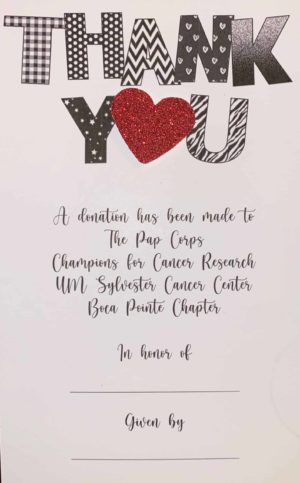 THANK
YOU
A donation has been made to
The Pap Corps
Champions for Cancer Research
UM Sylvester Cancer Center
Boca Pointe Chapter
In honor of
Given by